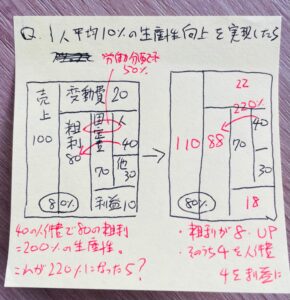 Q. 1人平均10%の生産性向上を実現したら
労働分配率
50%
売上
100
変動費 20
粗利
80
固定費
70
人
40
他
30
利益 10
80%
→
110
22
88
220%
70
40
30
18
80%
40の人件費で80の粗利
=200%の生産性。
これが220%になったら?
・粗利が8・UP
・そのうち4を人件費
4を利益に